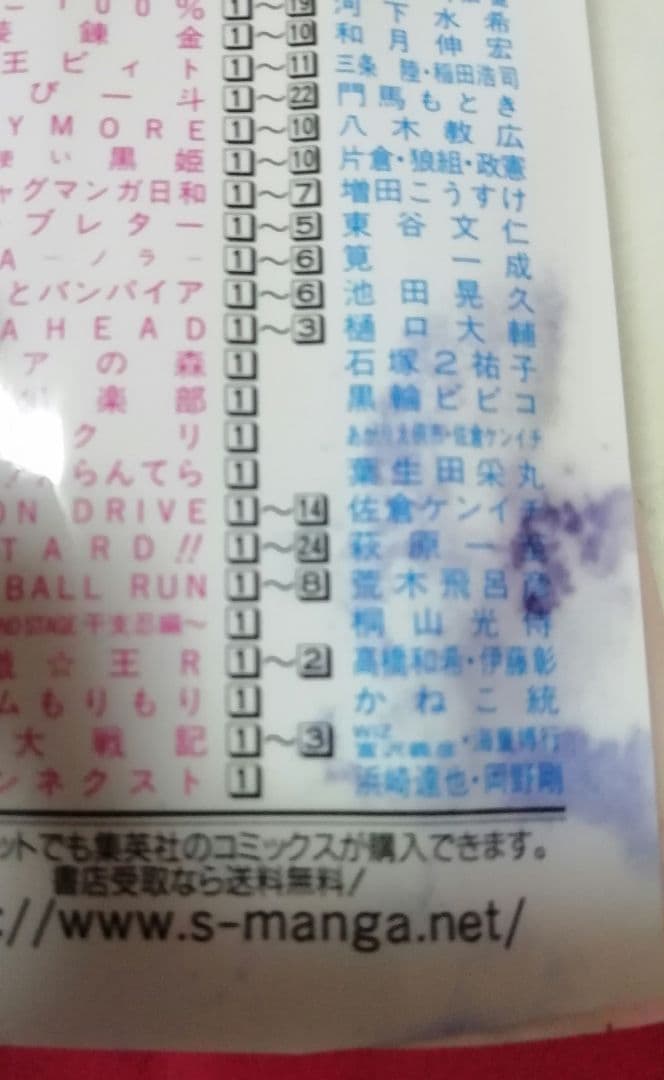 00% 1〜19 河下水希
錬金 1〜10 和月伸宏
王ビィト 1〜11 三条 陸・稲田浩司
び一斗 1〜22 門馬もとき
YMORE 1〜10 八木教広
い黒姫 1〜10 片倉・狼組・政憲
ャグマンガ日和 1〜7 増田こうすけ
ブレター 1〜5 東谷文仁
A－ノラ－ 1〜6 筧一成
とバンパイア 1〜6 池田晃久
AHEAD 1〜3 樋口大輔
アの森 1 石塚2祐子
楽部 1 黒輪ビビコ
クリ 1 佐倉ケンイチ
らんてら 1 葉生田采丸
ON DRIVE 1〜14 佐倉ケンイチ
TARD!! 1〜24 萩原一
BALL RUN 1〜8 荒木飛呂
ND STAGE 干支忍編〜 1 桐山光侍
☆王R 1〜2 高橋和希・伊藤彰
ムもりもり 1 かねこ統
大戦記 1〜3 WiZ
ンネクスト 1 浜崎達也・岡野剛
ットでも集英社のコミックスが購入できます。
書店受取なら送料無料/
://www.s-manga.net/